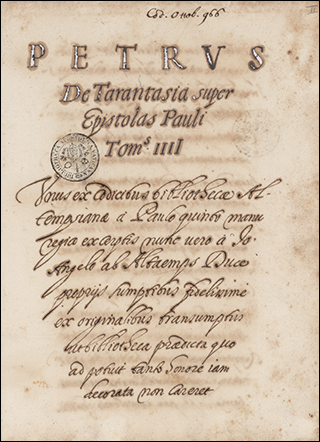 Cod. Ottob. 966
PETRVS
De Tarantasia super
Epistolas Pauli
Tomˢ IIII
Vnus ex Codicibus bibliothecæ Al-
tempsianæ à Paulo quinto manu
regia excerptis nunc vero à Jo.
Angelo ab Altaemps Duce
proprijs sumptibus fidelissimè
ex originalibus transumptus
ut bibliotheca prædicta quo
ad potuit tanto honore iam
decorata non careret